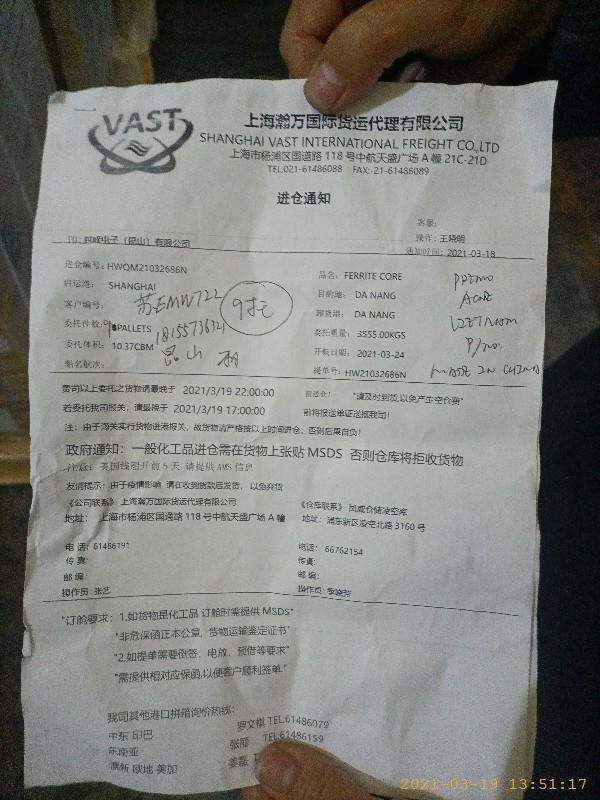 VAST
上海瀚万国际货运代理有限公司
SHANGHAI VAST INTERNATIONAL FREIGHT CO.,LTD
上海市杨浦区国道路 118 号中航天盛广场 A 幢 21C-21D
TEL:021-61486088 FAX:-21-61486089
进仓通知
客服:
TO: 越峰电子(昆山)有限公司
操作: 王晓明
通知时间: 2021-03-18
进仓编号: HWQM21032686N
品名: FERRITE CORE
启运港: SHANGHAI
目的港: DA NANG
客户编号: 苏EMW722
9托
卸货港: DA NANG
委托件数: PALLETS
委托重量: 3555.00KGS
委托体积: 10.37CBM
昆山
开航日期: 2021-03-24
船名航次:
提单号: HW21032686N
P/no.
MADE IN CHINA
贵司以上委托之货物请最晚于 2021/3/19 22:00:00 前进仓! "请及时到货,以免产生空仓费"
若委托我司报关，请最晚于 2021/3/19 17:00:00 前将报送单证送抵我司!
注: 由于海关实行货物进港报关，故货物请严格按以上时间进仓，否则后果自负!
政府通知: 一般化工品进仓需在货物上张贴 MSDS 否则仓库将拒收货物
注意: 美国线船开前 5 天 请提供 AMS 信息
友情提示: 由于疫情影响 请在收到货款后发货，以免弃货
《公司联系》上海瀚万国际货运代理有限公司
《仓库联系》凤威仓储凌空库
地址: 上海市杨浦区国通路 118 号中航天盛广场 A 幢
地址: 浦东新区凌空北路 3160 号
电话: 61486191
电话: 66762154
传真:
传真:
邮编:
邮编:
操作员: 张艺
操作员: 李晓芳
"订舱要求: 1.如货物是化工品 订舱时需提供 MSDS"
"非危保函正本公章，货物运输鉴定证书"
"2.如提单需要倒签、电放、预借等要求"
"需提供相对应保函,以便客户顺利签单."
我司其他港口拼箱询价热线:
中东 印巴 罗文祺 TEL:61486079
东南亚 张丽 TEL:61486159
澳新 欧地 美加 姜磊
2021-03-19 13:51:17